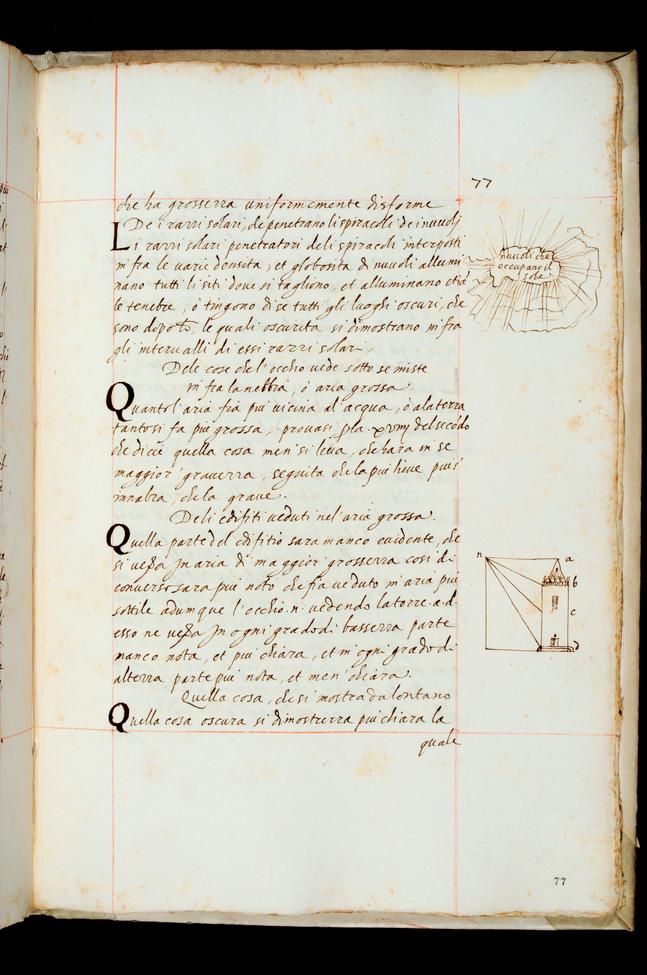 77
che ha grossezza uniformemente disforme
De i razzi solari, che penetrano li spiracoli de i nuvoli
Li razzi solari penetratori deli spiracoli interposti
in fra le varie densita, et globosita di nuvoli allumi
nano tutti li siti dove si tagliono, et alluminano etiā
le tenebre, o tingono di se tutti gli luoghi oscuri, che
sono dopo, le quali oscurita si dimostrano in fra
gli intervalli di essi razzi solari
nuvoli che
occupano il
sole
Dele cose che l'occhio vede sotto se miste
in fra la nebbia, o aria grossa.
Quanto l'aria fia piu vicina al'acqua, o ala terra
tanto si fa piu grossa, provasi p la del secōdo
che dicie quella cosa men si leva, che hara in se
maggior' gravezza, seguita che la piu lieve piu s'
innalza che la grave.
Deli edifiti veduti nel'aria grossa.
Quella parte del edifitio sara manco evidente, che
si vedra in aria di maggior' grossezza cosi di
converso sara piu noto che fia veduto in aria piu
sottile adumque l'occhio .n. vedendo la torre .a.d.
esso ne vedra in ogni grado di bassezza parte
manco nota, et piu chiara, et in ogni grado di
altezza parte piu nota, et men' chiara.
n a
b
c
d
Quella cosa, che si mostra da lontano
Quella cosa oscura si dimosterra piu chiara la
quale
77